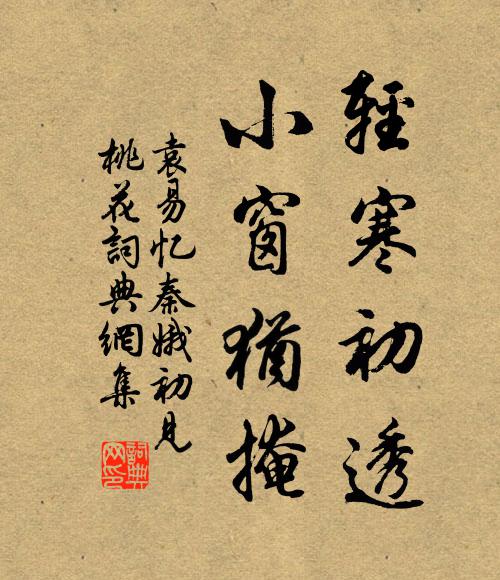 輕寒初透
小窗猶掩
袁易忆秦娥初見
桃花詞典網集
詞典
网印